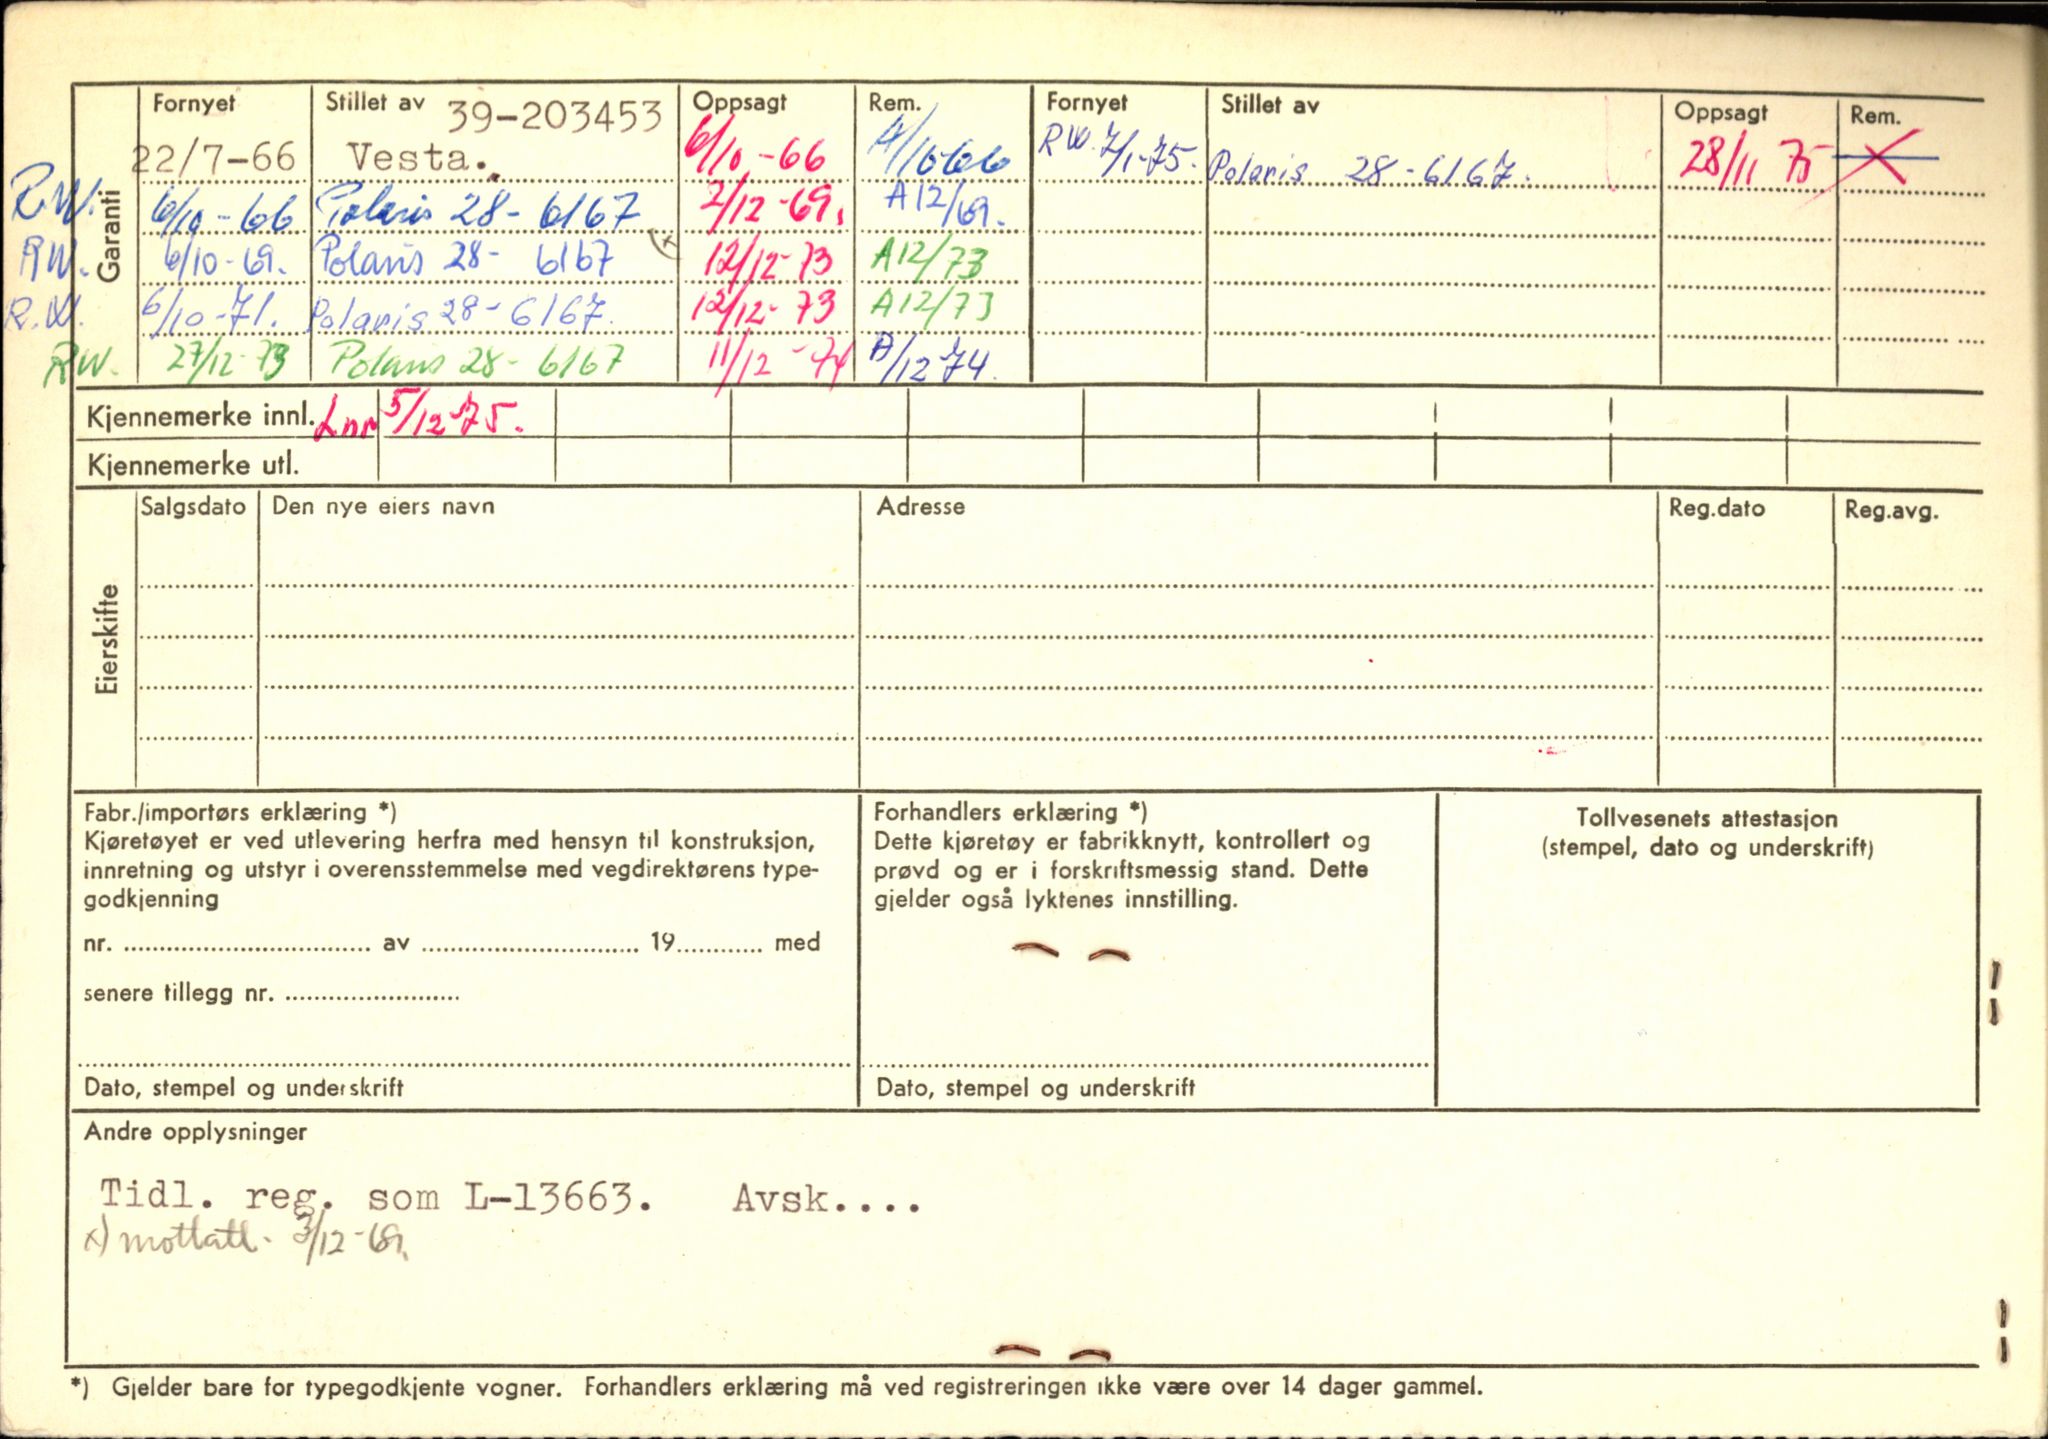 Garanti
Fornyet Stillet av 39-203453 Oppsagt Rem. Fornyet Stillet av Oppsagt Rem.
22/7-66 Vesta. 6/10-66 A/10-66 RW. 7/1-75. Polaris 28-6167. 28/11 75
R.W. 6/10-66 Polaris 28-6167 2/12-69. A12/69.
RW. 6/10-69. Polaris 28- 6167 (x 12/12-73 A12/73
R.W. 6/10-71. Polaris 28-6167. 12/12-73 A12/73
RW. 27/12-73 Polaris 28-6167 11/12-74 A/12-74.
Kjennemerke innl. Lnr 5/12-75.
Kjennemerke utl.
Eierskifte
Salgsdato Den nye eiers navn Adresse Reg.dato Reg.avg.
Fabr./importørs erklæring *)
Kjøretøyet er ved utlevering herfra med hensyn til konstruksjon,
innretning og utstyr i overensstemmelse med vegdirektørens type-
godkjenning
nr. .................... av .................... 19.......... med
senere tillegg nr. ....................
Dato, stempel og underskrift
Forhandlers erklæring *)
Dette kjøretøy er fabrikknytt, kontrollert og
prøvd og er i forskriftsmessig stand. Dette
gjelder også lyktenes innstilling.
Dato, stempel og underskrift
Tollvesenets attestasjon
(stempel, dato og underskrift)
Andre opplysninger
Tidl. reg. som L-13663. Avsk....
x) mottatt. 3/12-69.
*) Gjelder bare for typegodkjente vogner. Forhandlers erklæring må ved registreringen ikke være over 14 dager gammel.